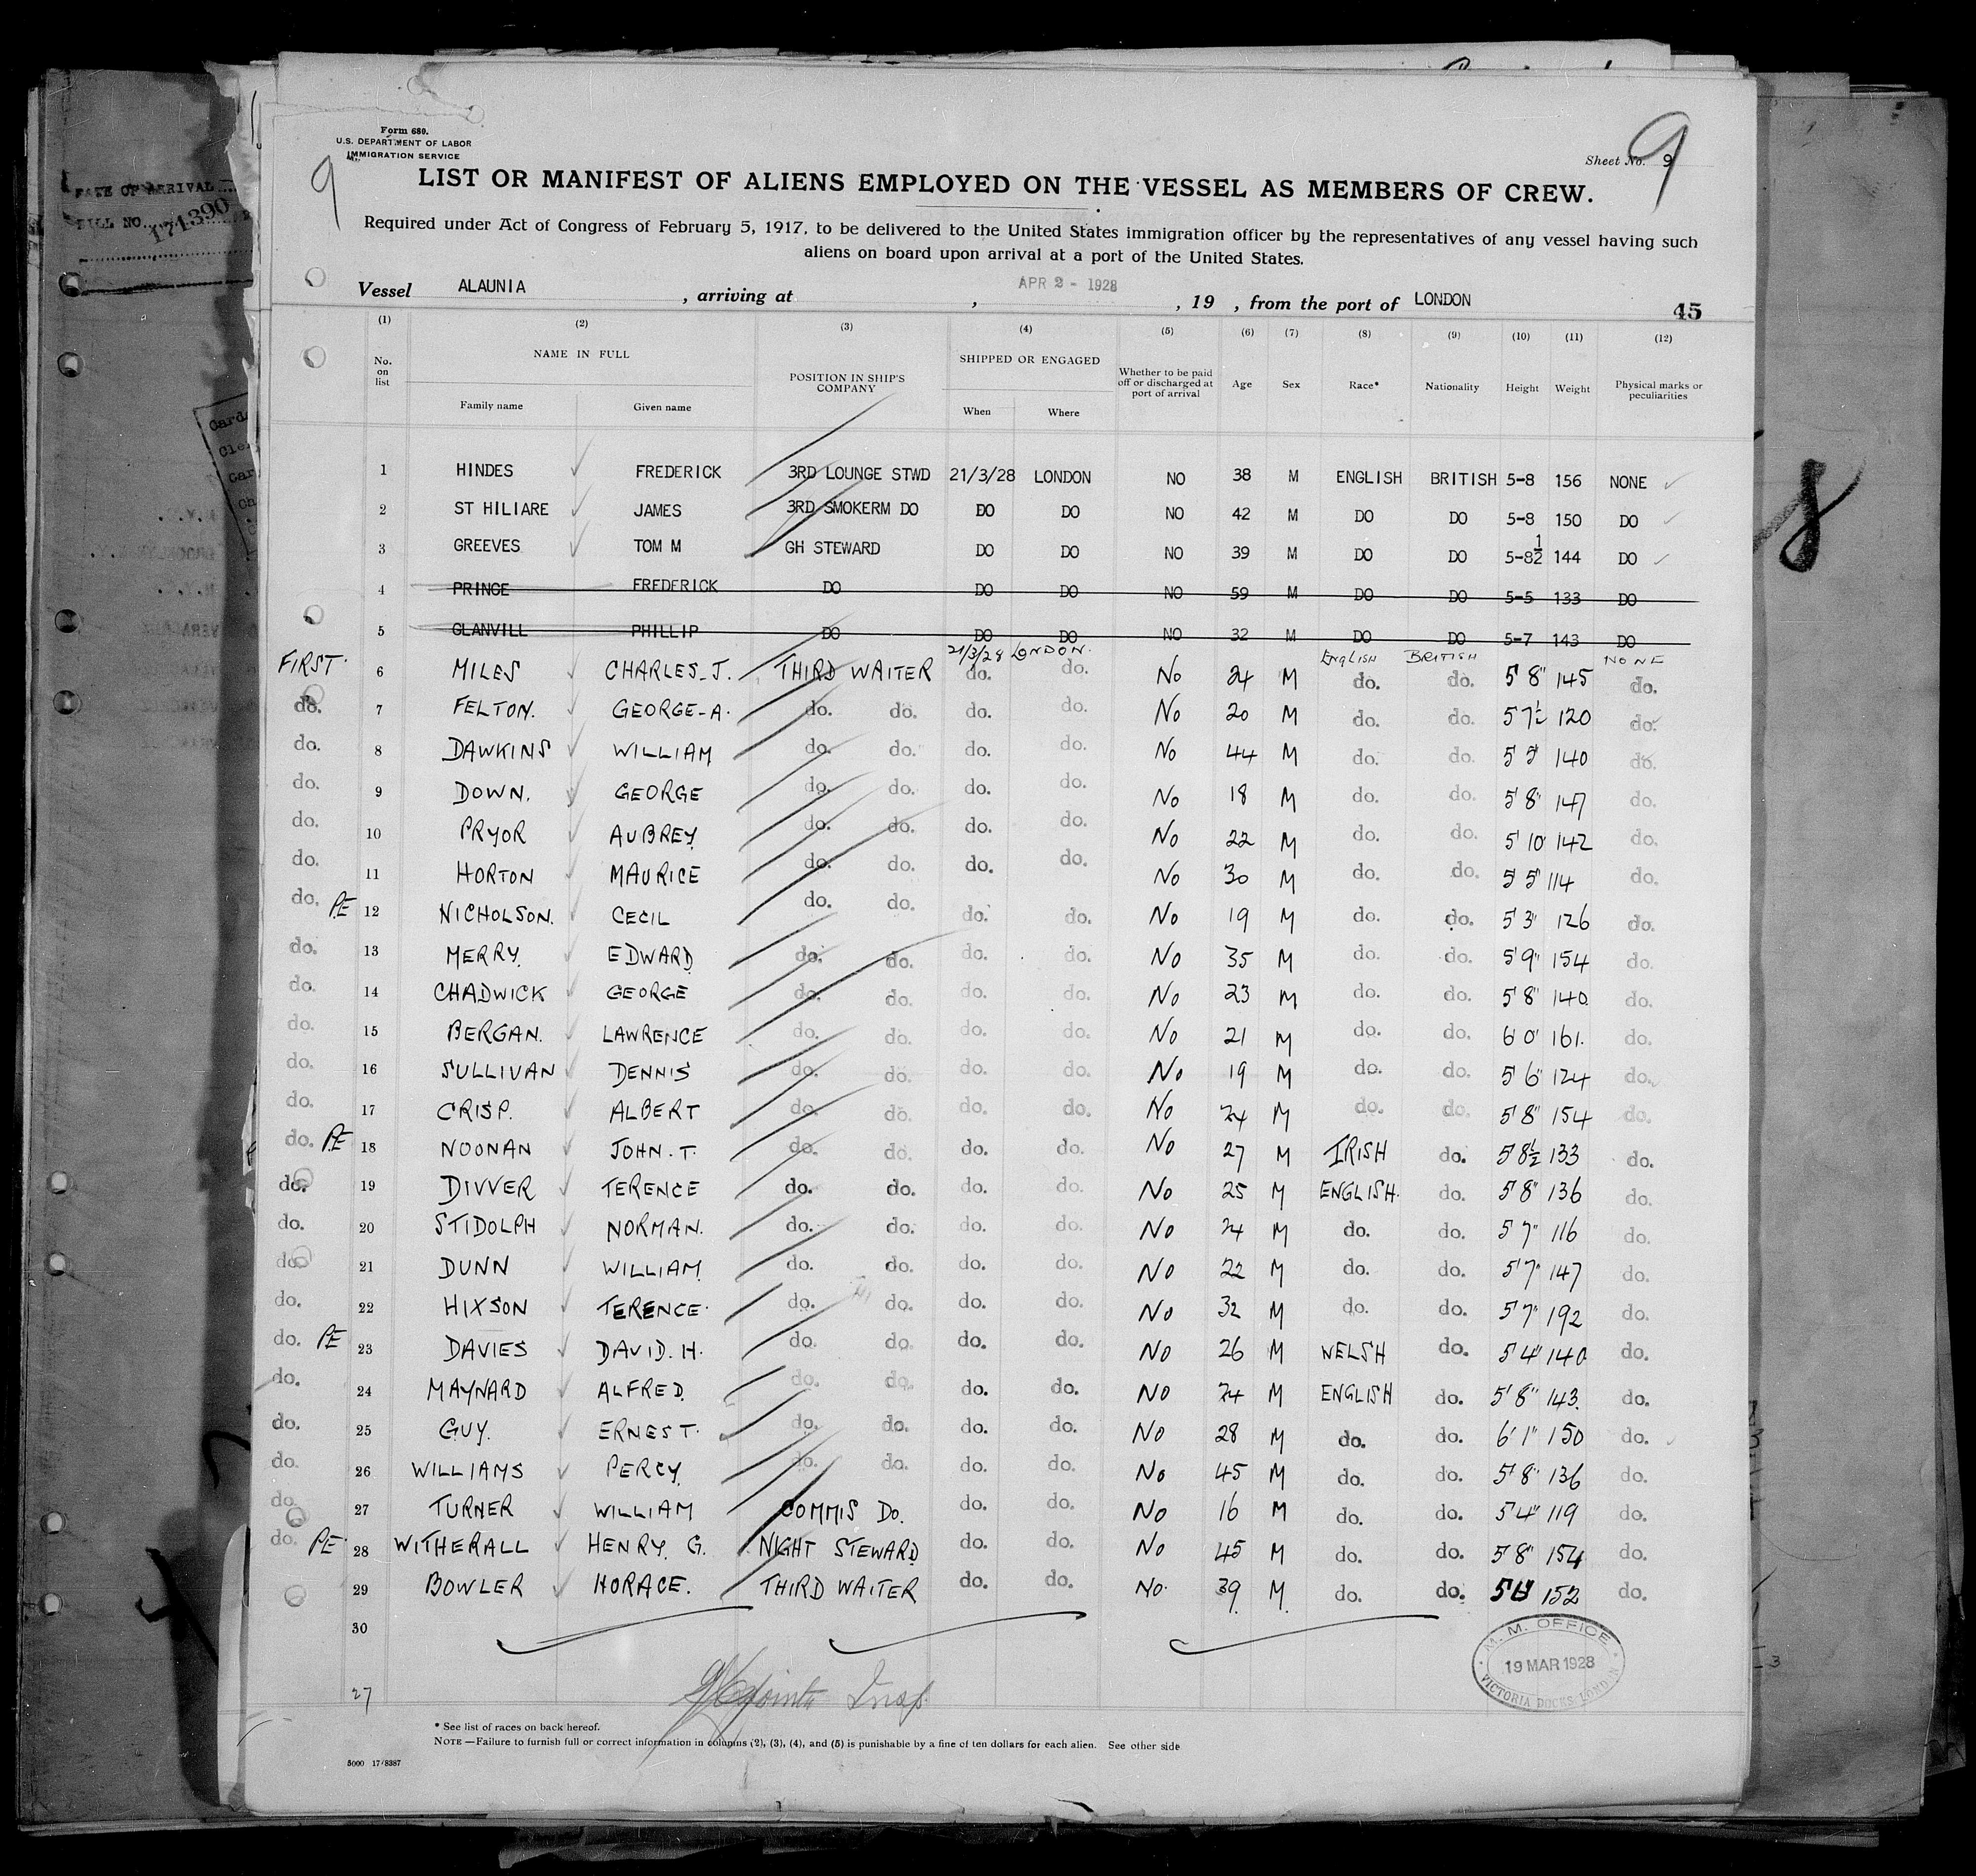 Form 680.
U.S. DEPARTMENT OF LABOR
IMMIGRATION SERVICE
Sheet No. 9
9
9
LIST OR MANIFEST OF ALIENS EMPLOYED ON THE VESSEL AS MEMBERS OF CREW.
Required under Act of Congress of February 5, 1917, to be delivered to the United States immigration officer by the representatives of any vessel having such
aliens on board upon arrival at a port of the United States.
Vessel ALAUNIA , arriving at , APR 2 - 1928 , 19 , from the port of LONDON
45
(1) (2) (3) (4) (5) (6) (7) (8) (9) (10) (11) (12)
No. on list NAME IN FULL Family name Given name POSITION IN SHIP'S COMPANY SHIPPED OR ENGAGED When Where Whether to be paid off or discharged at port of arrival Age Sex Race* Nationality Height Weight Physical marks or peculiarities
1 HINDES FREDERICK 3RD LOUNGE STWD 21/3/28 LONDON NO 38 M ENGLISH BRITISH 5-8 156 NONE
2 ST HILIARE JAMES 3RD SMOKERM DO DO DO NO 42 M DO DO 5-8 150 DO
3 GREEVES TOM M GH STEWARD DO DO NO 39 M DO DO 5-8½ 144 DO
4 PRINCE FREDERICK DO DO DO NO 59 M DO DO 5-5 133 DO
5 GLANVILL PHILLIP DO DO DO NO 32 M DO DO 5-7 143 DO
21/3/28 LONDON. ENGLISH BRITISH NONE
FIRST. 6 MILES CHARLES. J. THIRD WAITER do. do. No 24 M do. do. 5' 8" 145 do.
do. 7 FELTON. GEORGE-A. do. do. do. do. No 20 M do. do. 5 7½ 120 do.
do. 8 DAWKINS WILLIAM do. do. do. do. No 44 M do. do. 5' 5" 140 do.
do. 9 DOWN. GEORGE do. do. do. do. No 18 M do. do. 5' 8" 147 do.
do. 10 PRYOR AUBREY. do. do. do. do. No 22 M do. do. 5' 10 142 do.
do. 11 HORTON MAURICE do. do. do. do. No 30 M do. do. 5' 5" 114 do.
do. PE 12 NICHOLSON. CECIL do. do. do. do. No 19 M do. do. 5' 3" 126 do.
do. 13 MERRY. EDWARD do. do. do. do. No 35 M do. do. 5' 9" 154 do.
do. 14 CHADWICK GEORGE do. do. do. do. No 23 M do. do. 5' 8" 140 do.
do. 15 BERGAN. LAWRENCE do. do. do. do. No 21 M do. do. 6 0" 161. do.
do. 16 SULLIVAN DENNIS do. do. do. do. No 19 M do. do. 5' 6" 124 do.
do. 17 CRISP. ALBERT do. do. do. do. No 24 M do. do. 5' 8" 154 do.
do. PE 18 NOONAN JOHN. T. do. do. do. do. No 27 M IRISH do. 5' 8½ 133 do.
do. 19 DIVVER TERENCE do. do. do. do. No 25 M ENGLISH. do. 5' 8" 136 do.
do. 20 STIDOLPH NORMAN. do. do. do. do. No 24 M do. do. 5 7" 116 do.
do. 21 DUNN WILLIAM do. do. do. do. No 22 M do. do. 5' 7" 147 do.
do. 22 HIXSON TERENCE. do. do. do. do. No 32 M do. do. 5' 7" 192 do.
do. PE 23 DAVIES DAVID. H. do. do. do. do. No 26 M WELSH do. 5' 4" 140 do.
do. 24 MAYNARD ALFRED. do. do. do. do. No 24 M ENGLISH do. 5' 8" 143. do.
do. 25 GUY. ERNEST. do. do. do. do. No 28 M do. do. 6' 1" 150 do.
do. 26 WILLIAMS PERCY. do. do. do. do. No 45 M do. do. 5' 8" 136 do.
do. 27 TURNER WILLIAM COMMIS DO. do. do. No 16 M do. do. 5' 4" 119 do.
do. PE 28 WITHERALL HENRY. G. NIGHT STEWARD do. do. No 45 M do. do. 5' 8" 154 do.
29 BOWLER HORACE. THIRD WAITER do. do. No. 39. M. do. do. 152 do.
30
M. M. OFFICE
19 MAR 1928
VICTORIA DOCKS LONDON
27 Insp.
* See list of races on back hereof.
NOTE —Failure to furnish full or correct information in columns (2), (3), (4), and (5) is punishable by a fine of ten dollars for each alien. See other side
5000 17/8387
DATE OF ARRIVAL
BILL NO. 171390
8